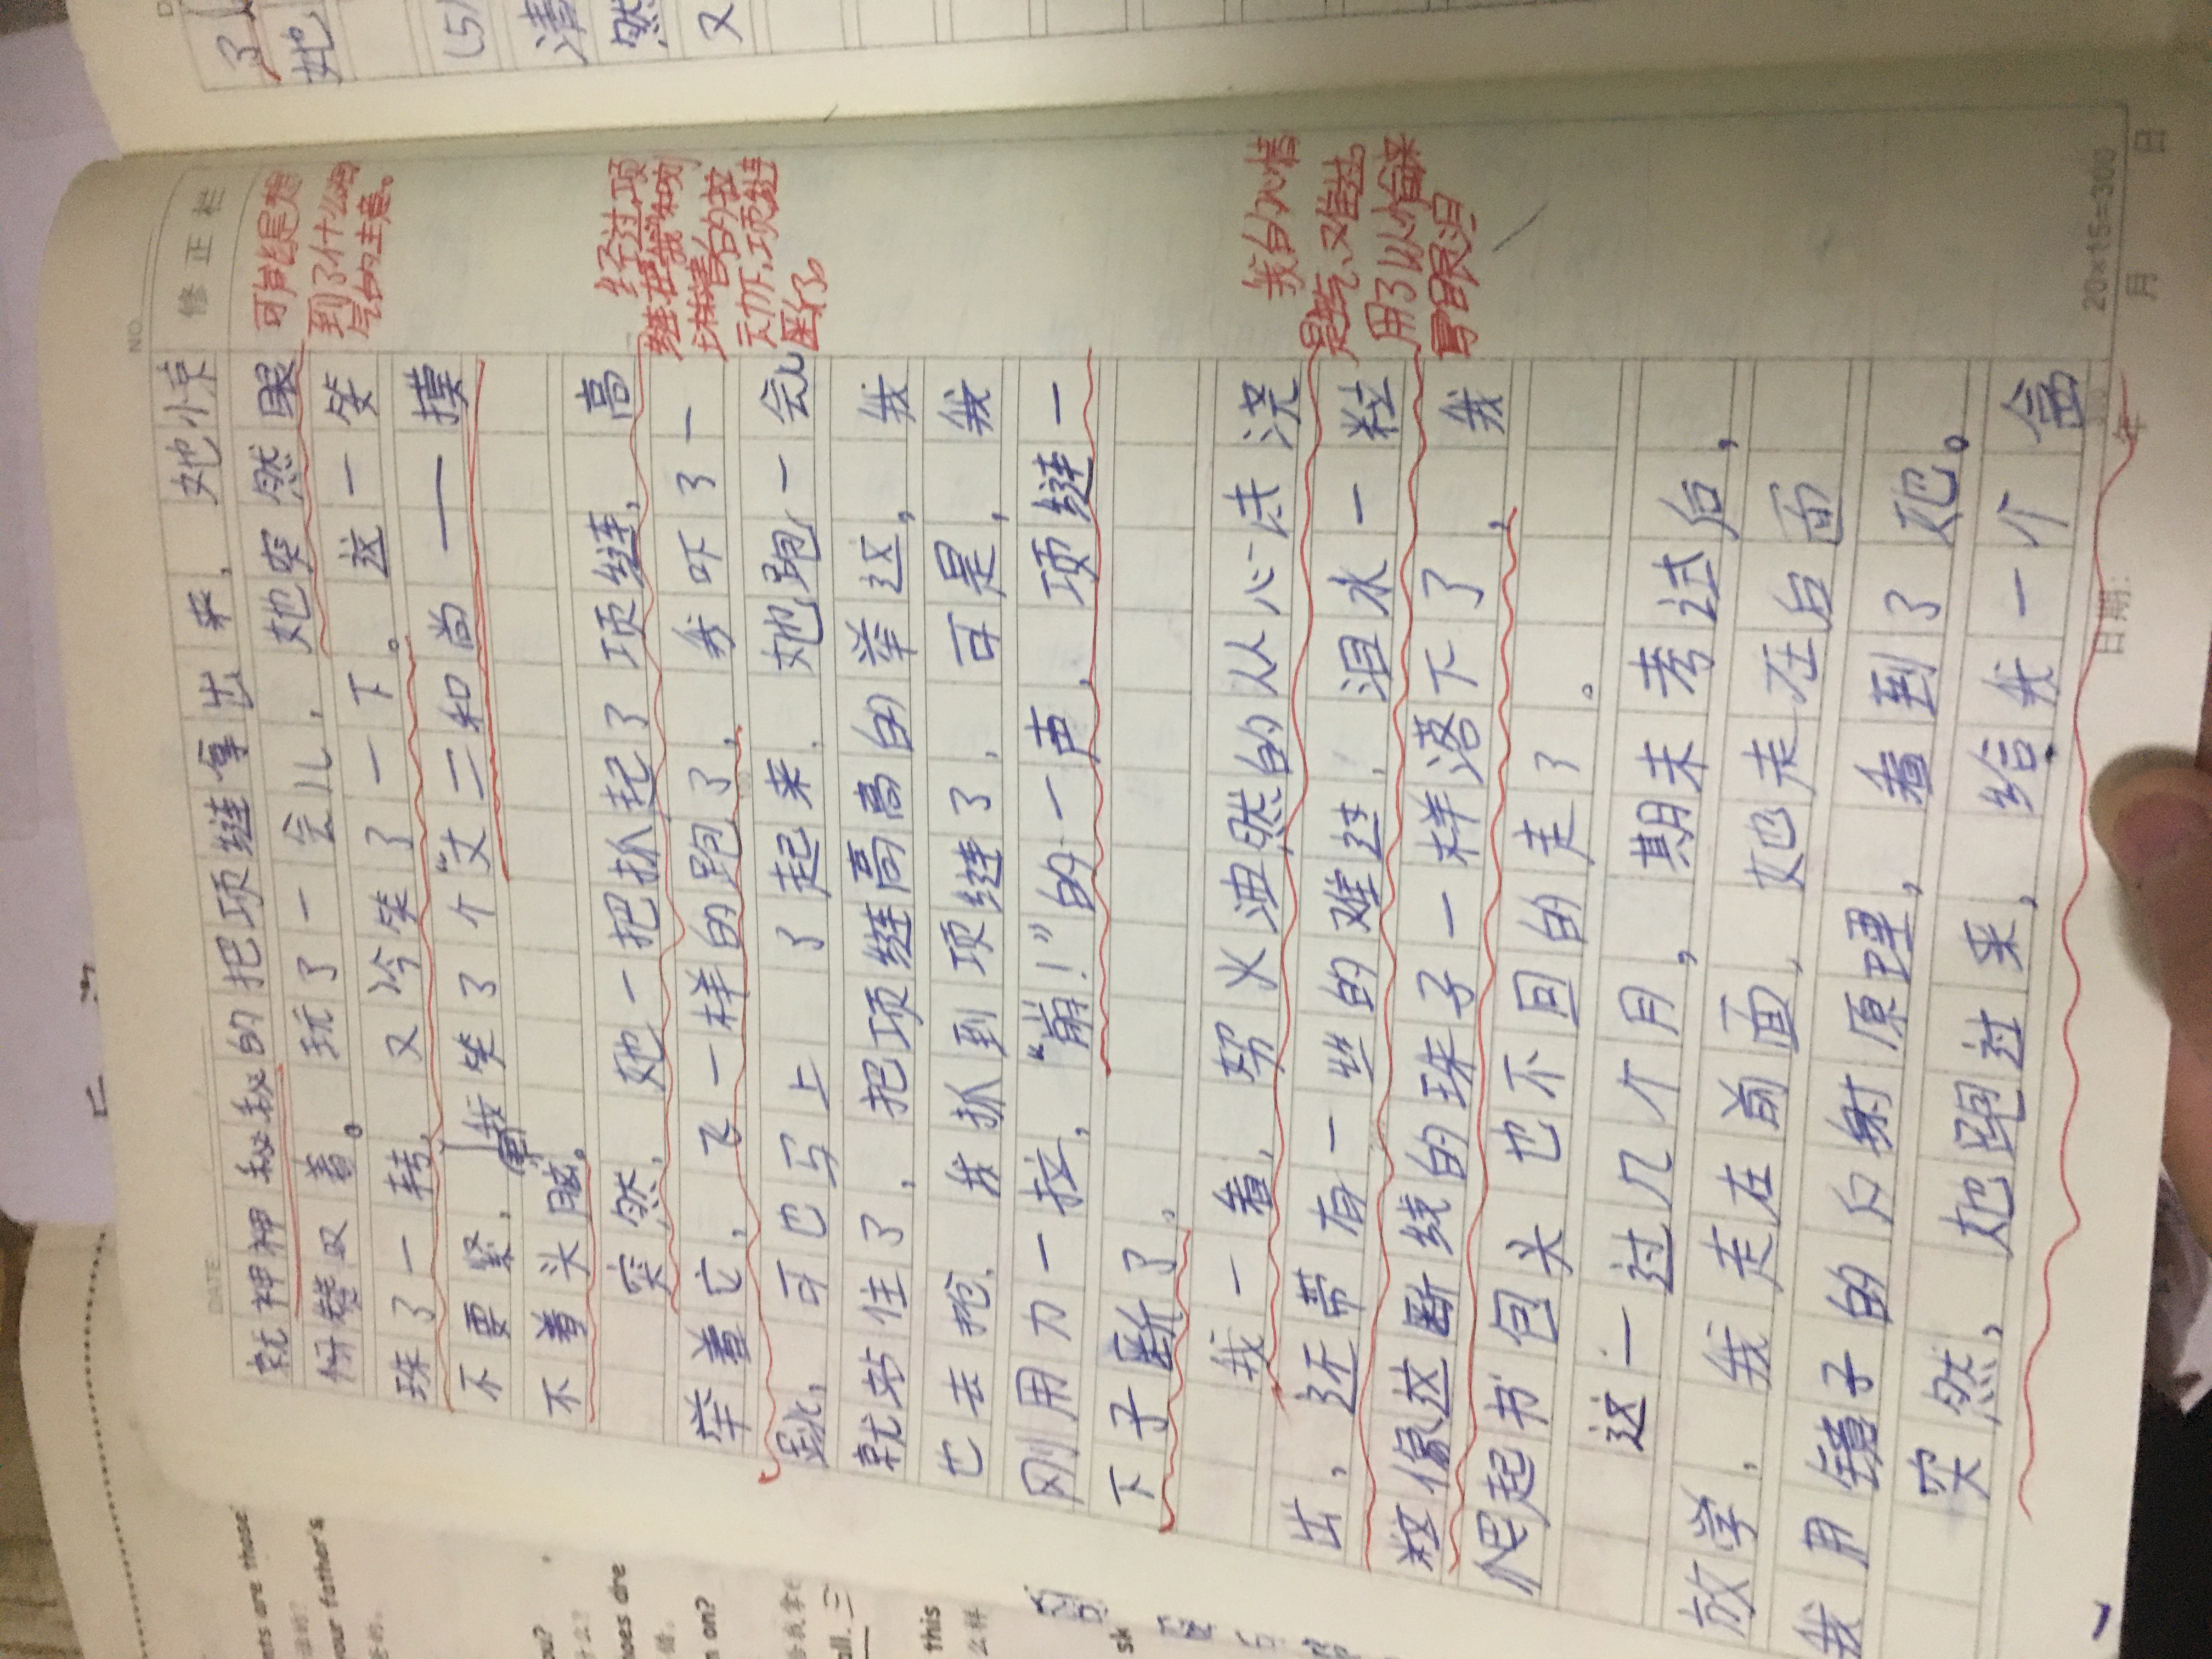 了
她
(5)
清
然
又
DATE
NO.
修正栏
就神神秘秘的把项链拿出来，她小京
玩了一会儿，她突然眼
珠了一转，又吟笑了一下。这一笑
不要紧，我笑了个“丈二和尚——摸
不着头脑。
突然，她一把抓起了项链，高
举着它，飞一样的跑了，我吓了一
跳，可也马上了起来，她跑一会儿
就站住了，把项链高高的举这，我
也去抢，我抓到项链了，可是，我
刚用力一拉，“崩！”的一声，项链一
下子断了。
我一看，努火油然的从心法浇
出，还带有一丝的难过，泪水一粒
粒像这断线的珠子一样落下了，我
爬起书包头也不回的走了。
这一过几个月，期末考试后，
放学，我走在前面，她走在后面
我用镜子的反射原理，看到了她。
突然，她跑过来，给我一个盒
可能是想
到了什么好
的主意。
经过项
链断了。
我的心情
是气、又难过。
用了从
写眼泪
20×15=300
日期： 年 月 日
nts are those
your father's
ou?
hoes are
n on?
all.
this
么样
sk